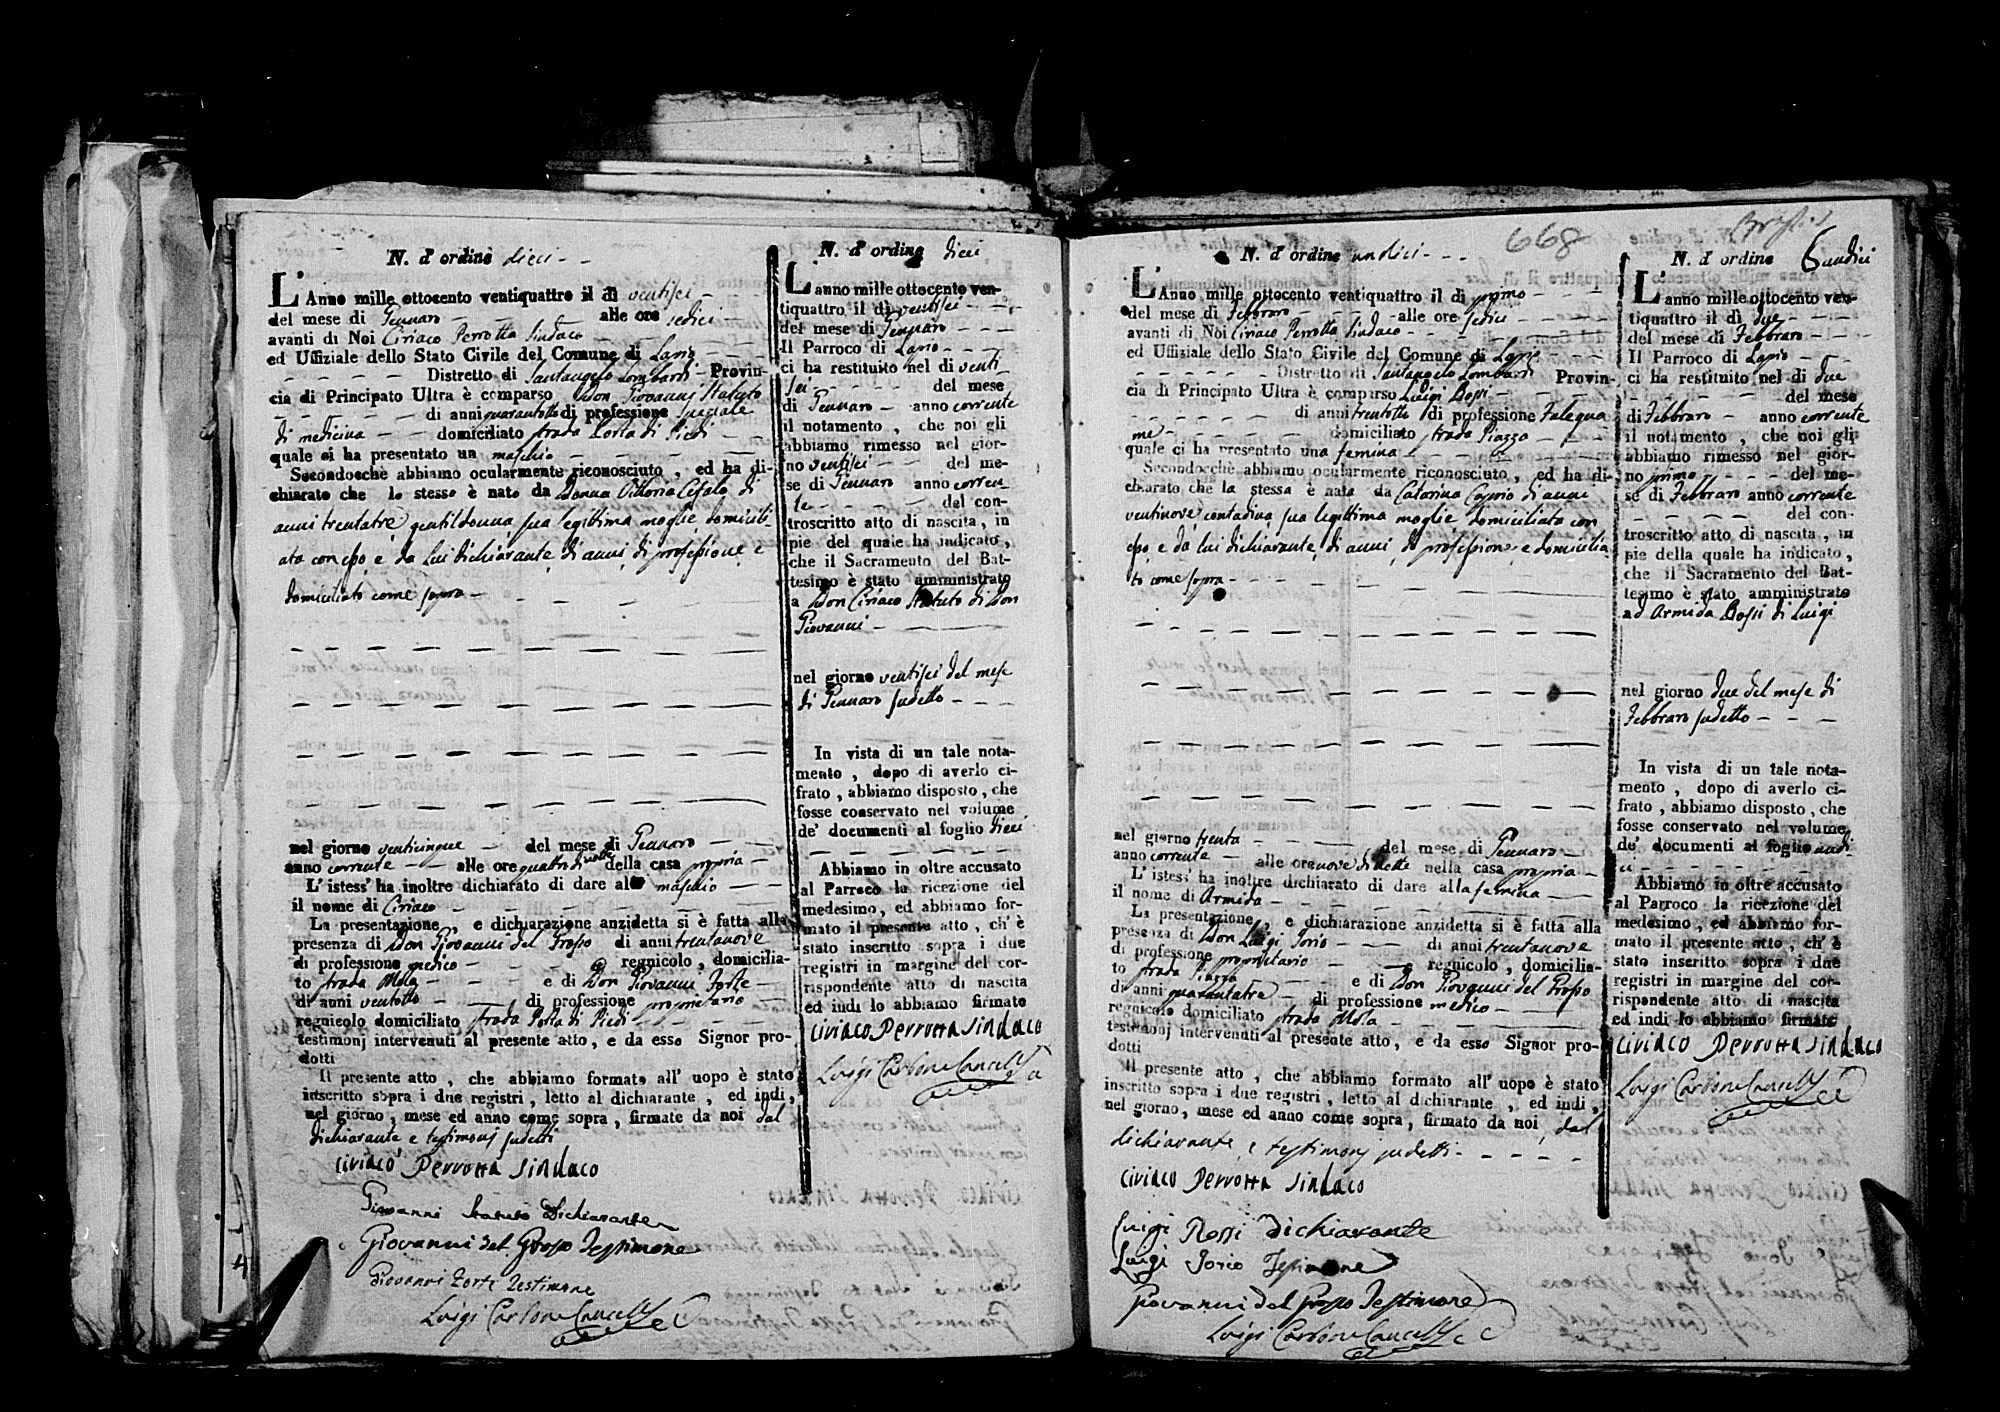 N. d' ordine dieci - -
L' Anno mille ottocento ventiquattro il dì ventisei -
del mese di Gennaro - - alle ore sedici -
avanti di Noi Ciriaco Perrotta Sindaco - -
ed Uffiziale dello Stato Civile del Comune di Lapio
- - - - - Distretto di Santangelo Lombardi - Provin-
cia di Principato Ultra è comparso Don Giovanni Statuto
- - - - - di anni quarantotto di professione Speciale
di medicina - - domiciliato strada Porta di Piedi -
quale ci ha presentato un maschio - - - -
Secondochè abbiamo ocularmente riconosciuto , ed ha di-
chiarato che lo stesso è nato da Donna Vittoria Cefalo di
anni trentatre gentildonna sua legittima moglie domicili
ata con esso, e da lui dichiarante, di anni, di professione, e
domiciliato come sopra - - - - -
nel giorno venticinque - del mese di Gennaro - -
anno corrente - - alle ore quattro di notte della casa propria -
L' istess' ha inoltre dichiarato di dare al maschio - -
il nome di Ciriaco - - - - -
La presentazione , e dichiarazione anzidetta si è fatta alla
presenza di Don Giovanni del Grosso di anni trentanove
di professione medico - - - - regnicolo , domicilia-
to strada Mola - - - e di Don Giovanni Forte -
di anni ventotto - - di professione proprietario -
regnicolo domiciliato strada Porta di Piedi - - - -
testimonj intervenuti al presente atto , e da esso Signor pro-
dotti
Il presente atto , che abbiamo formato all' uopo è stato
inscritto sopra i due registri , letto al dichiarante , ed indi ,
nel giorno , mese ed anno come sopra , firmato da noi dal
dichiarante e testimonj sudetti
Ciriaco Perrotta Sindaco
Giovanni Statuto Dichiarante
Giovanni del Grosso Testimone
Giovanni Forte Testimone
Luigi Carbone Cancell.e
N. d' ordine dieci
L' anno mille ottocento ven-
tiquattro il dì ventisei - -
del mese di Gennaro - - -
Il Parroco di Lapio - - -
ci ha restituito nel dì venti
sei - - - - del mese
di Gennaro - anno corrente
il notamento , che noi gli
abbiamo rimesso nel gior-
no ventisei - - del me-
se di Gennaro anno corren
te - - - - del con-
troscritto atto di nascita , in
pie del quale ha indicato ,
che il Sacramento del Bat-
tesimo è stato amministrato
a Don Ciriaco Statuto di Don
Giovanni - - -
nel giorno ventisei del mese
di Gennaro sudetto - - -
In vista di un tale nota-
mento , dopo di averlo ci-
frato , abbiamo disposto , che
fosse conservato nel volume
de' documenti al foglio dieci
- - - - - -
Abbiamo in oltre accusato
al Parroco la ricezione del
medesimo , ed abbiamo for-
mato il presente atto , ch' è
stato inscritto sopra i due
registri in margine del cor-
rispondente atto di nascita
ed indi lo abbiamo firmato
Ciriaco Perrotta Sindaco
Luigi Carbone Cancell.e
668
N. d' ordine undici - - -
L' Anno mille ottocento ventiquattro il dì primo - - -
del mese di Febbraro - - - alle ore sedici - - -
avanti di Noi Ciriaco Perrotta Sindaco - - - -
ed Uffiziale dello Stato Civile del Comune di Lapio - -
- - - - - Distretto di Santangelo Lombardi Provin-
cia di Principato Ultra è comparso Luigi Rossi - - -
- - - - - di anni trentotto di professione Falegna
me - - - - - domiciliato strada Piazza - - -
quale ci ha presentato una femina - - - - -
Secondochè abbiamo ocularmente riconosciuto , ed ha di-
chiarato che la stessa è nata da Catarina Caprio di anni
ventinove, contadina, sua legittima moglie, domiciliata con
esso, e da lui dichiarante, di anni, di professione, e domicilia
to come sopra - - - - - -
nel giorno trenta - - - - del mese di Gennaro - -
anno corrente - - alle ore nove di notte nella casa propria -
L' istess' ha inoltre dichiarato di dare alla femina - -
il nome di Armida - - - - -
La presentazione , e dichiarazione anzidetta si è fatta alla
presenza di Don Luigi Iorio - - - di anni trentanove
di professione proprietario - - - regnicolo , domicilia-
to strada Piazza - - - e di Don Giovanni del Grosso
di anni quarantatre - - di professione medico - -
regnicolo domiciliato strada Mola - - - - -
testimonj intervenuti al presente atto , e da esso Signor pro-
dotti
Il presente atto , che abbiamo formato all' uopo è stato
inscritto sopra i due registri , letto al dichiarante , ed indi ,
nel giorno , mese ed anno come sopra , firmato da noi , dal
dichiarante, e testimonj sudetti - - - - -
Ciriaco Perrotta Sindaco
Luigi Rossi dichiarante
Luigi Iorio Testimone
Giovanni del Grosso Testimone
Luigi Carbone Cancell.e
N. d' ordine undici
L' anno mille ottocento ven-
tiquattro il dì due - - -
del mese di Febbraro - -
Il Parroco di Lapio - - -
ci ha restituito nel dì due
- - - - - del mese
di Febbraro - anno corrente
il notamento , che noi gli
abbiamo rimesso nel gior-
no primo - - - - del me-
se di Febbraro anno corrente
- - - - - del con-
troscritto atto di nascita , in
pie della quale ha indicato ,
che il Sacramento del Bat-
tesimo è stato amministrato
ad Armida Rossi di Luigi
nel giorno due del mese di
Febbraro sudetto - - - -
In vista di un tale nota-
mento , dopo di averlo ci-
frato , abbiamo disposto , che
fosse conservato nel volume
de' documenti al foglio undi
ci - - - - - -
Abbiamo in oltre accusato
al Parroco la ricezione del
medesimo , ed abbiamo for-
mato il presente atto , ch' è
stato inscritto sopra i due
registri in margine del cor-
rispondente atto di nascita
ed indi lo abbiamo firmato
Ciriaco Perrotta Sindaco
Luigi Carbone Cancell.e